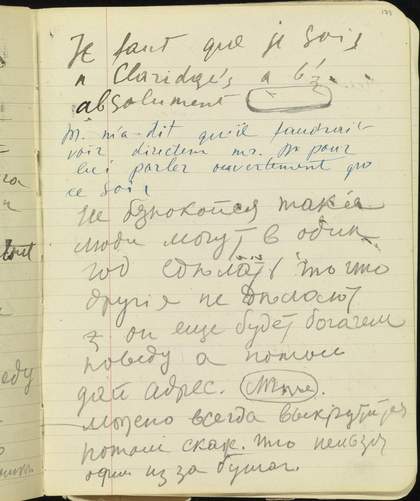 Il faut que je sois
a Claridge's a 6½
absolument
M. m'a dit qu'il faudrait
voir directeur mr. pour
lui parler ouvertement
ce soir
Не безпокойся такіе
люди могут в один
год сдѣлать то что
другія не дѣлают
он еще будет богачем
поведу а потом
дай адрес.
можно всегда выкрутиться
потом скаж. что
из за бумаг.